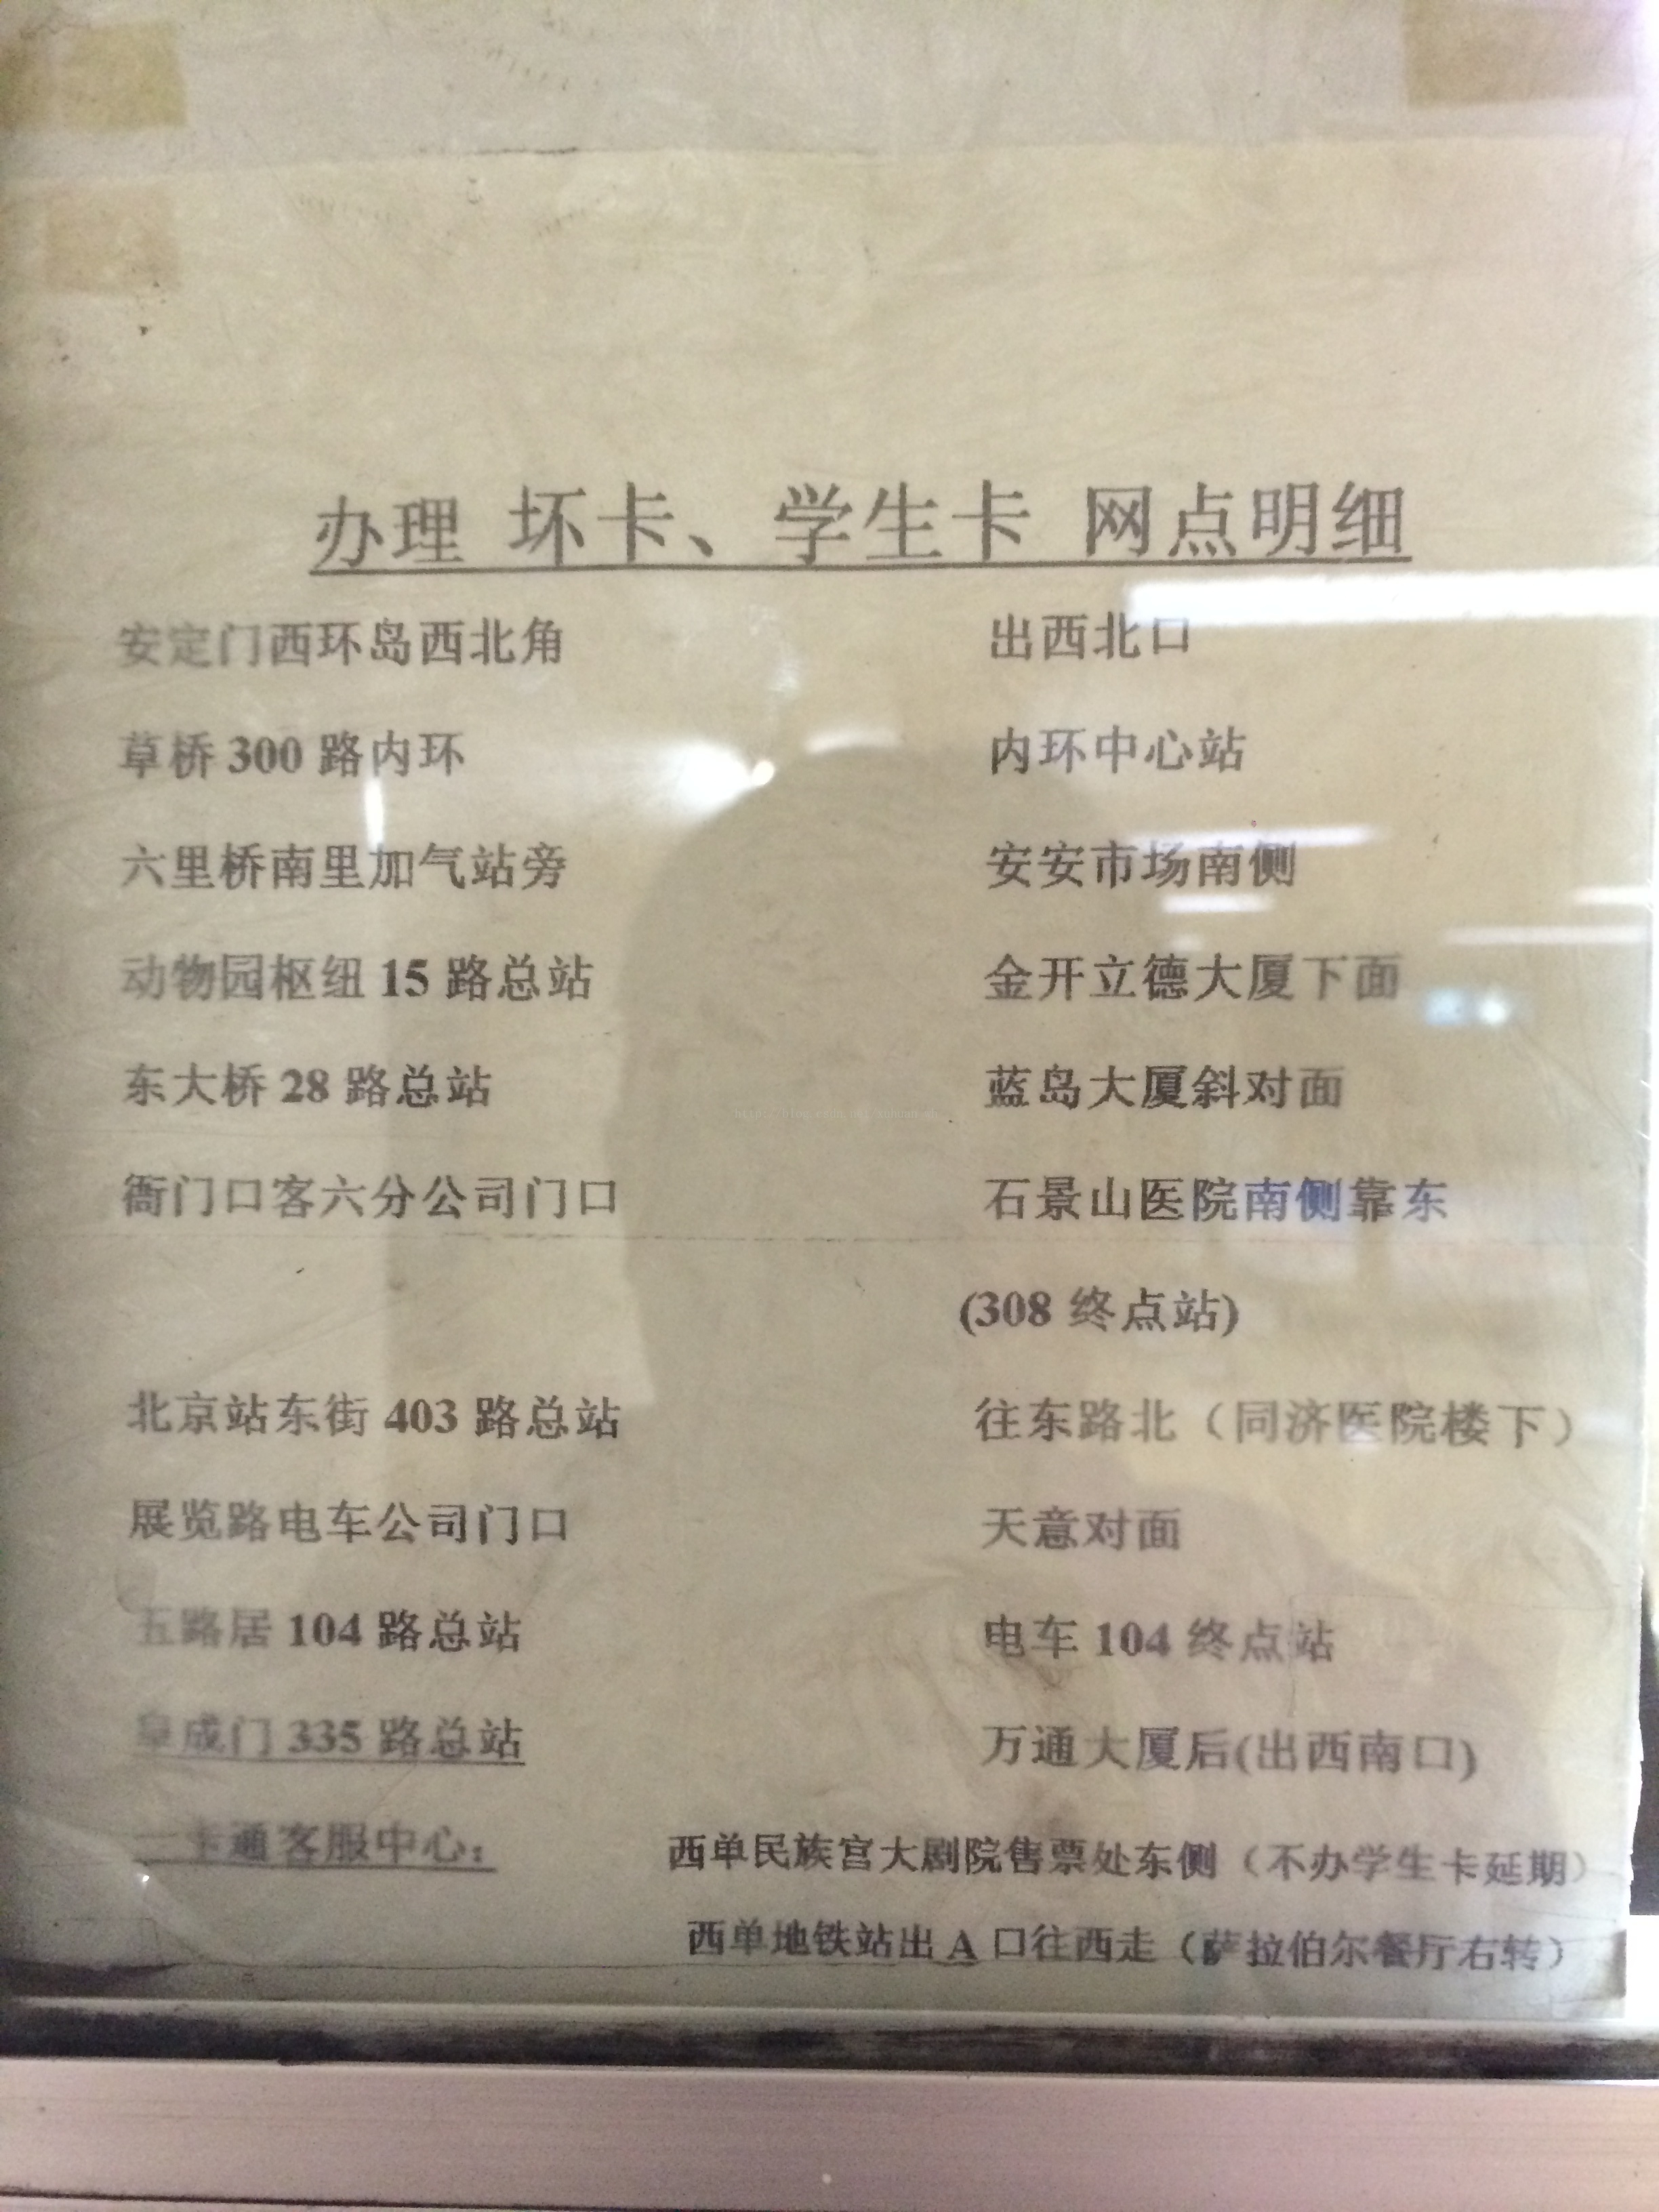 办理 坏卡、学生卡 网点明细
安定门西环岛西北角 出西北口
草桥 300 路内环 内环中心站
六里桥南里加气站旁 安安市场南侧
动物园枢纽 15 路总站 金开立德大厦下面
东大桥 28 路总站 蓝岛大厦斜对面
衙门口客六分公司门口 石景山医院南侧靠东
(308 终点站)
北京站东街 403 路总站 往东路北（同济医院楼下）
展览路电车公司门口 天意对面
五路居 104 路总站 电车 104 终点站
阜成门 335 路总站 万通大厦后(出西南口)
一卡通客服中心： 西单民族宫大剧院售票处东侧（不办学生卡延期）
西单地铁站出 A 口往西走（萨拉伯尔餐厅右转）